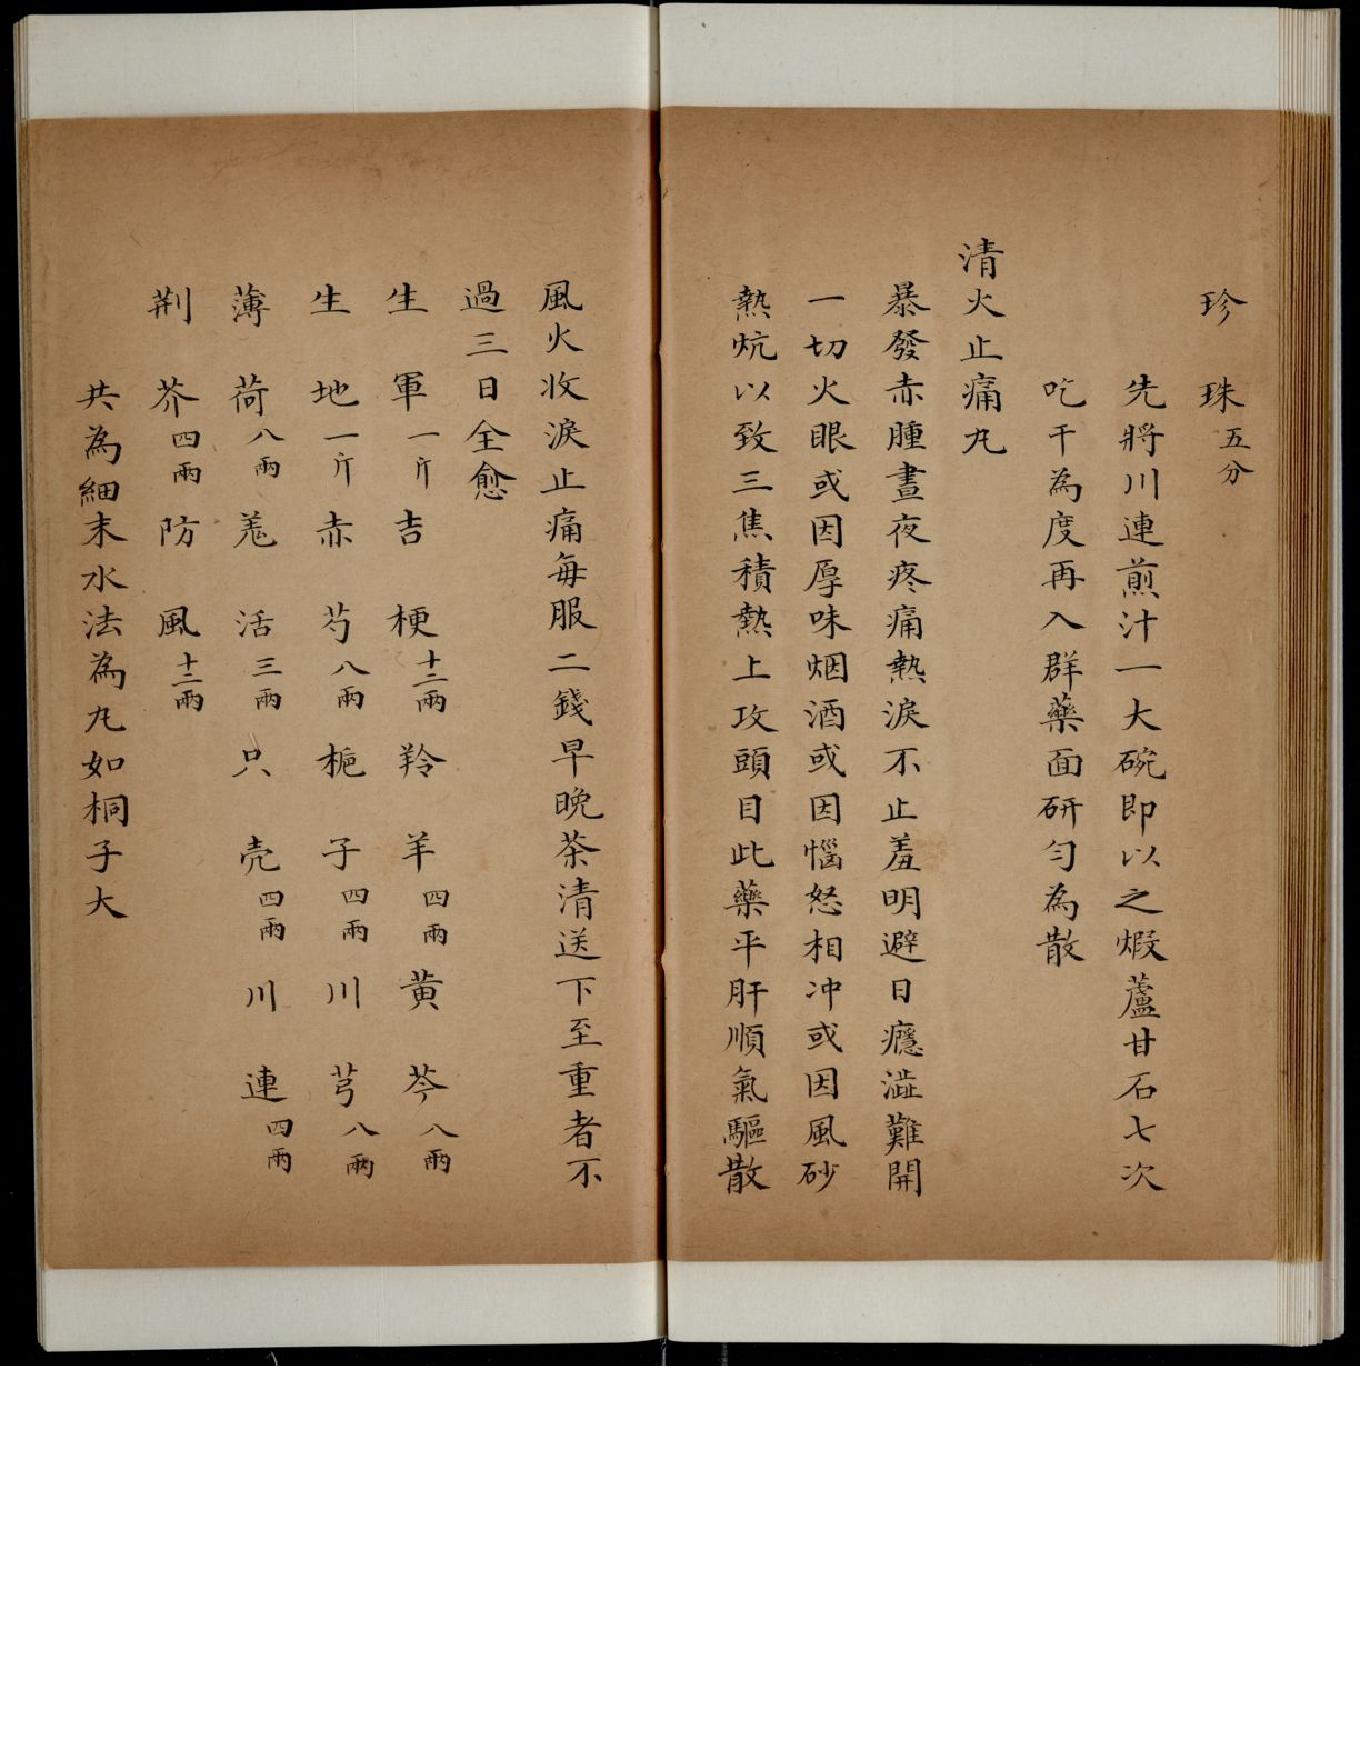 珍珠五分
先將川連煎汁一大碗即以之煆蘆甘石七次
吃干為度再入群藥面研勻為散
清火止痛丸
暴發赤腫晝夜疼痛熱淚不止羞明避日癮澁難開
一切火眼或因厚味烟酒或因惱怒相冲或因風砂
熱炕以致三焦積熱上攻頭目此藥平肝順氣驅散
風火收淚止痛每服二錢早晚茶清送下至重者不
過三日全愈
生軍一斤吉梗十二兩羚羊四兩黄芩八兩
生地一斤赤芍八兩梔子四兩川芎八兩
薄荷八兩羗活三兩只壳四兩川連四兩
荆芥四兩防風十二兩
共為細末水法為丸如桐子大